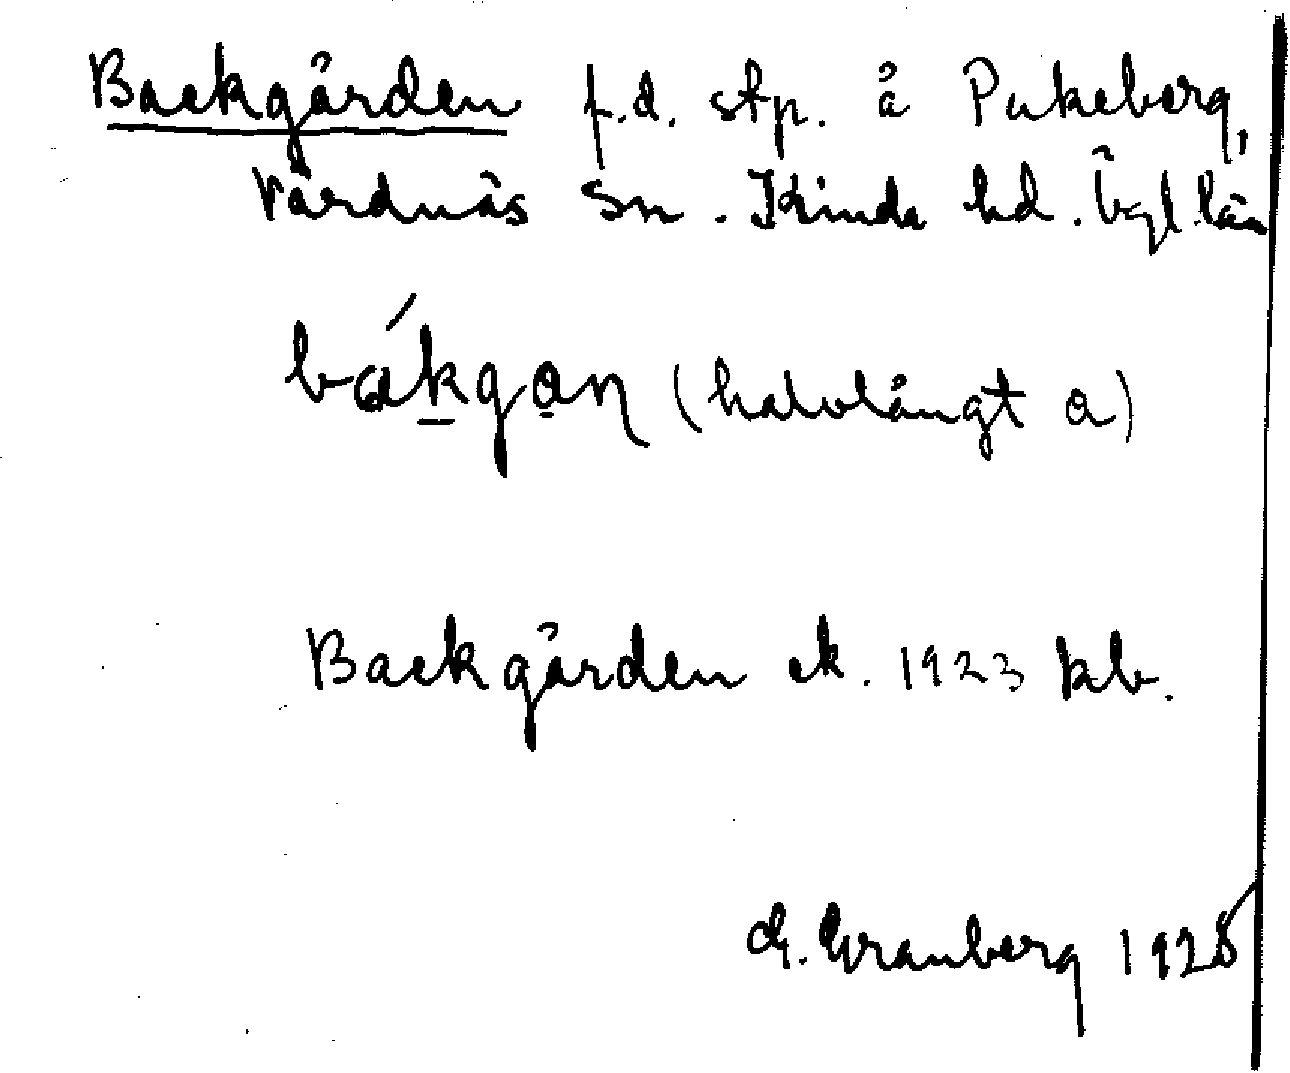 Backgården f.d. stp. å Pukeberg,
Vårdnäs sn. Kinda hd. Ögl. län
bákgan (halvlångt a)
Backgården ek. 1923 kb.
G. Granberg 1928